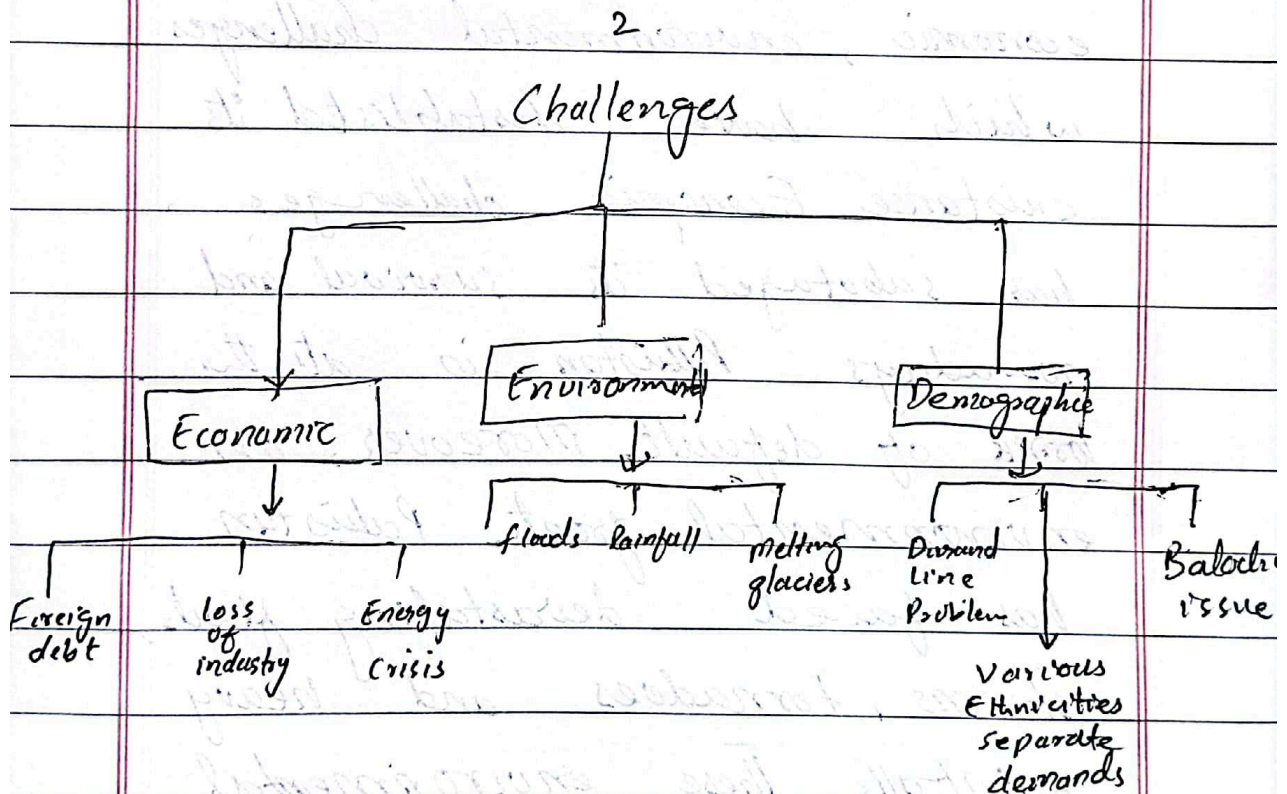 2
Challenges
Economic
Environmental
Demographic
Foreign
debt
Loss
of
industry
Energy
Crisis
floods Rainfall
melting
glaciers
Durand
Line
Problem
Various
Ethnicities
separate
demands
issue